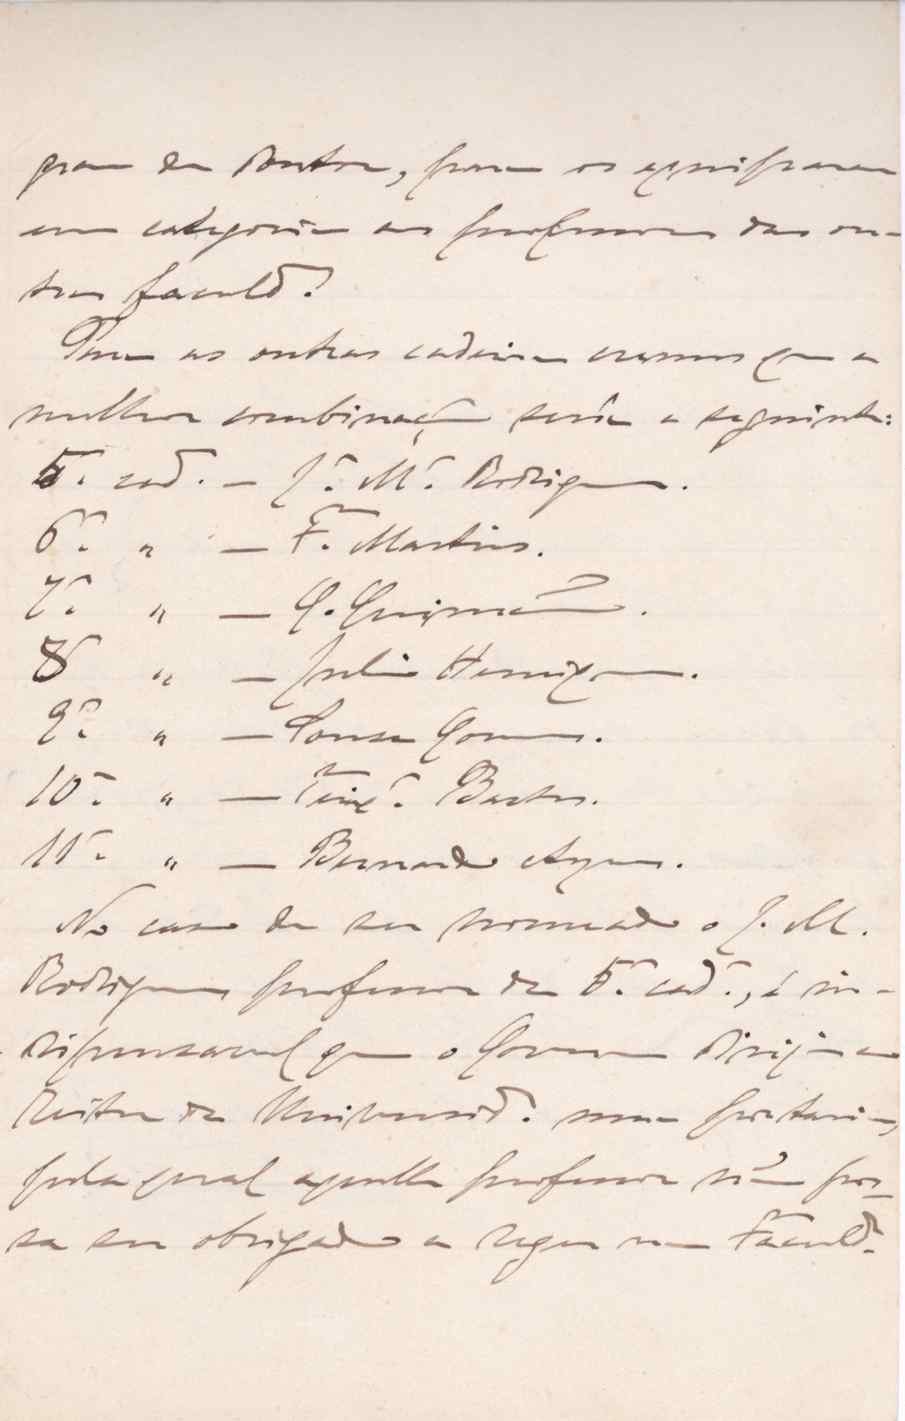 grau de Doutor, para os equipararem
em categoria aos professores das ou-
tras faculd.ᵉˢ
Para as outras cadeiras cremos que a
melhor combinação seria a seguinte:
5.ª cad. – J.ᵉ M.ª Rodrigues.
6.ª " – F. Martins.
7.ª " – G. Guimarães.
8ª " – Julio Henriques.
9.ª " – Sousa Gomes.
10.ª " – Teix.ª Bastos.
11.ª " – Bernardo Ayres.
No caso de ser nomeado o J. M.
Rodrigues professor da 5.ª cad.ª, é in-
dispensavel que o Governo dirija ao
Reitor da Universid.ᵉ uma portaria,
pela qual aquelle professor não pos-
sa ser obrigado a reger na Faculd.ᵉ